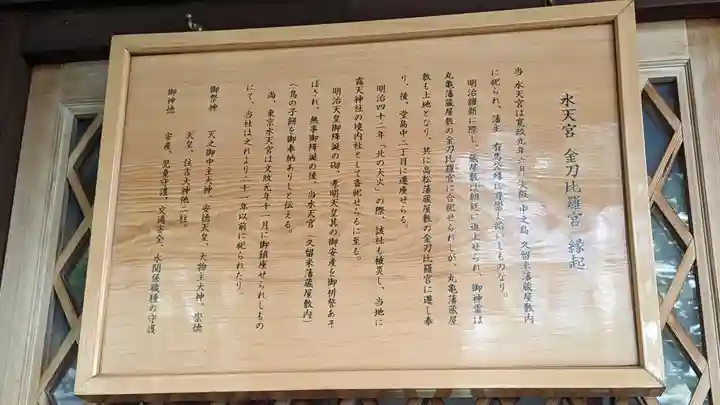 水天宮 金刀比羅宮 縁起
当 水天宮は寛政九年六月、大阪 中之島 久留米藩蔵屋敷内
に祀られ、藩主 有馬公の
明治維新に際し、蔵屋敷は朝廷に返上せられ、御神霊は
丸亀藩蔵屋敷の金刀比羅宮に合祀せられしが、丸亀藩蔵屋
敷も上地となり、共に高松藩蔵屋敷の金刀比羅宮に遷し奉
り、後、堂島中二丁目に遷座せらる。
明治四十二年「北の大火」の際、該社も被災し、当地に
露天神社の境内社として斎祀せらるに至る。
明治天皇御降誕の砌、孝明天皇其の御安産を御祈誓あそ
ばされ、無事御降誕の後、当水天宮(久留米藩蔵屋敷内)
へ鳥の子餅を御奉納ありしと伝える。
尚、東京水天宮は文政元年十一月に御鎮座せられしもの
にて、当社は之れより二十一年以前に祀られたり。
御祭神 天之御中主大神、安徳天皇、大物主大神、崇徳
天皇、住吉大神他二柱。
御神徳 安産、児童守護、交通安全、水関係職種の守護